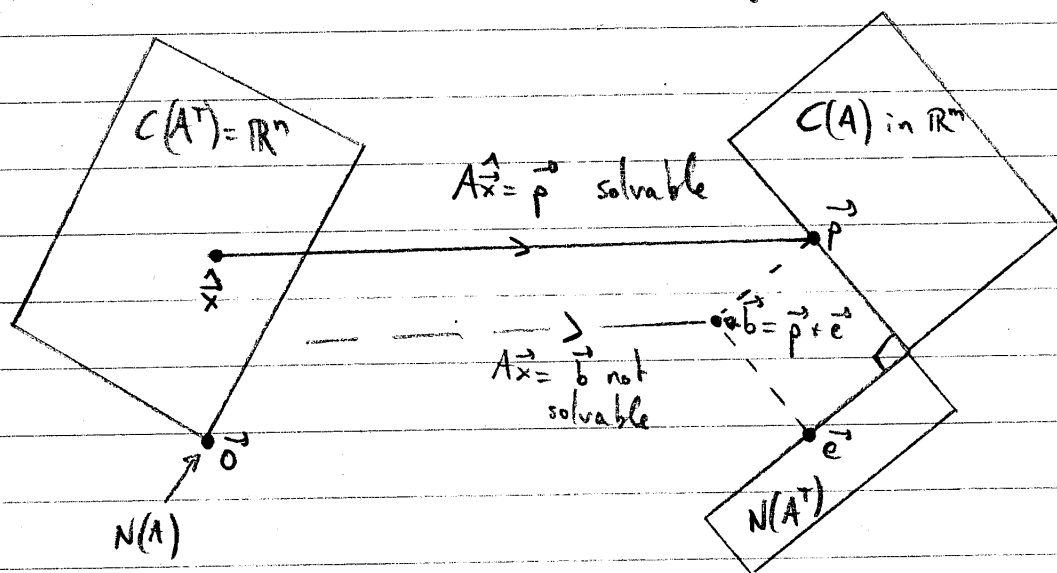 C(Aᵀ) = ℝⁿ
C(A) in ℝᵐ
Ax̂⃗ = p⃗ solvable
p⃗
x̂⃗
b⃗ = p⃗ + e⃗
Ax⃗ = b⃗ not
solvable
0⃗
e⃗
N(A)
N(Aᵀ)